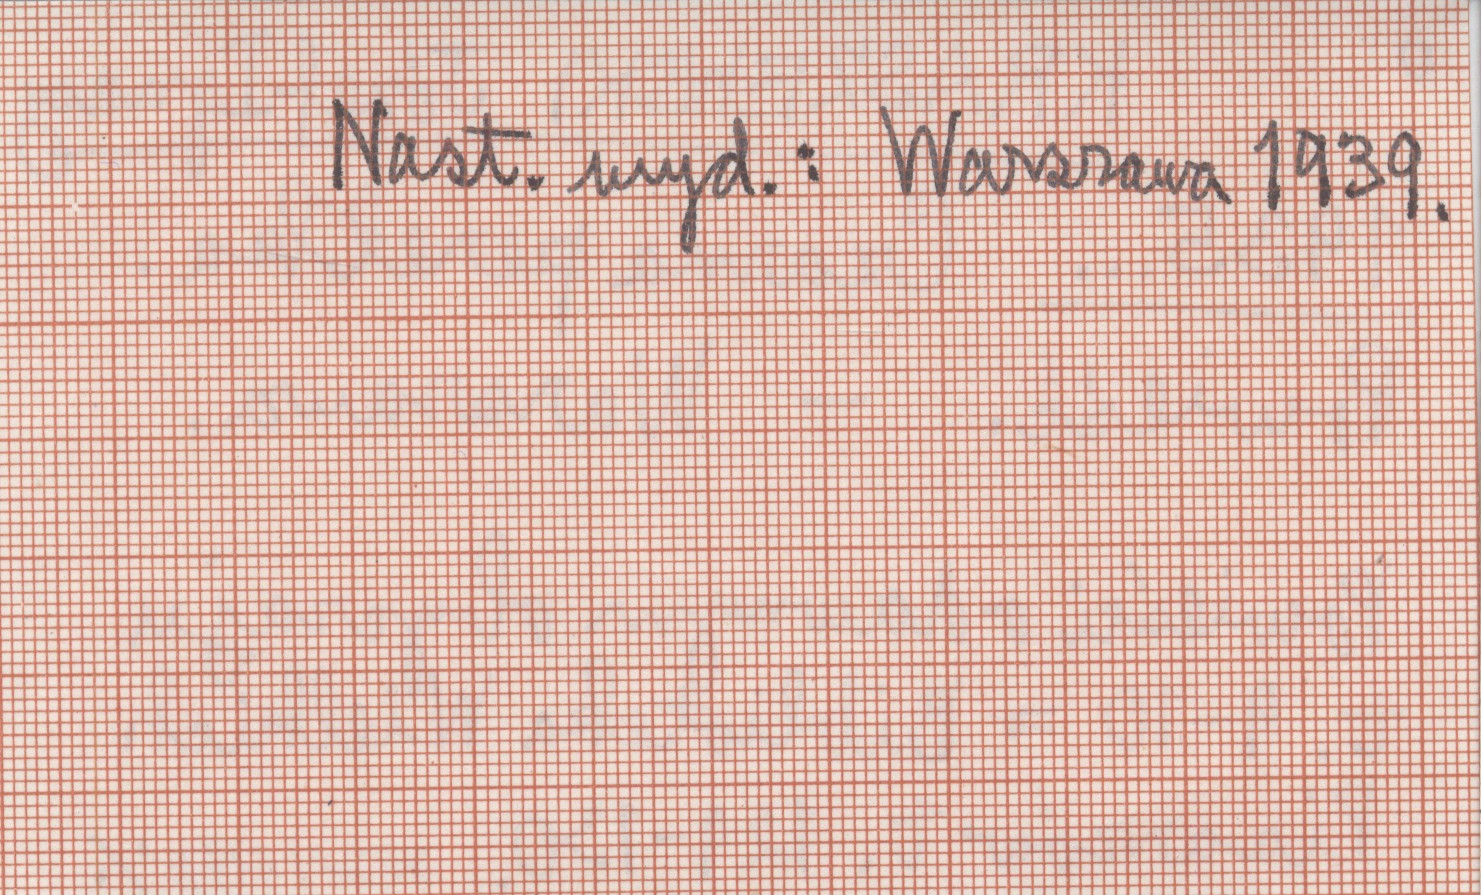 Nast. wyd.: Warszawa 1939.